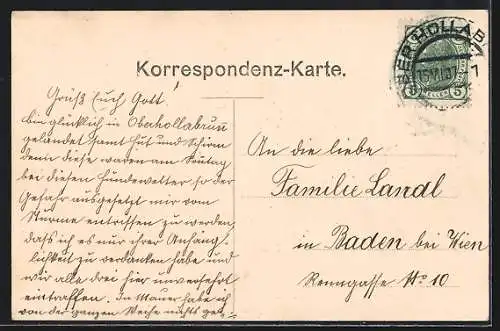 OBERHOLLABRUNN
15.VII.07
1
5 HELLER 5
Korrespondenz-Karte.
Grüß Euch Gott!
bin glücklich in Oberhollabrunn
gelandet samt Hut und Schirm
denn diese waren am Freitag
bei diesem Hundewetter so der
Gefahr ausgesetzt mir vom
Sturme entrissen zu werden,
dass ich es nur ihrer Anhäng-
lichkeit zu verdanken habe und
wir alle drei hier unversehrt
eintraffen. In Mauer habe ich
von der ganzen Woche nichts
An die liebe
Familie Landl
in Baden bei Wien
Renngasse No. 10